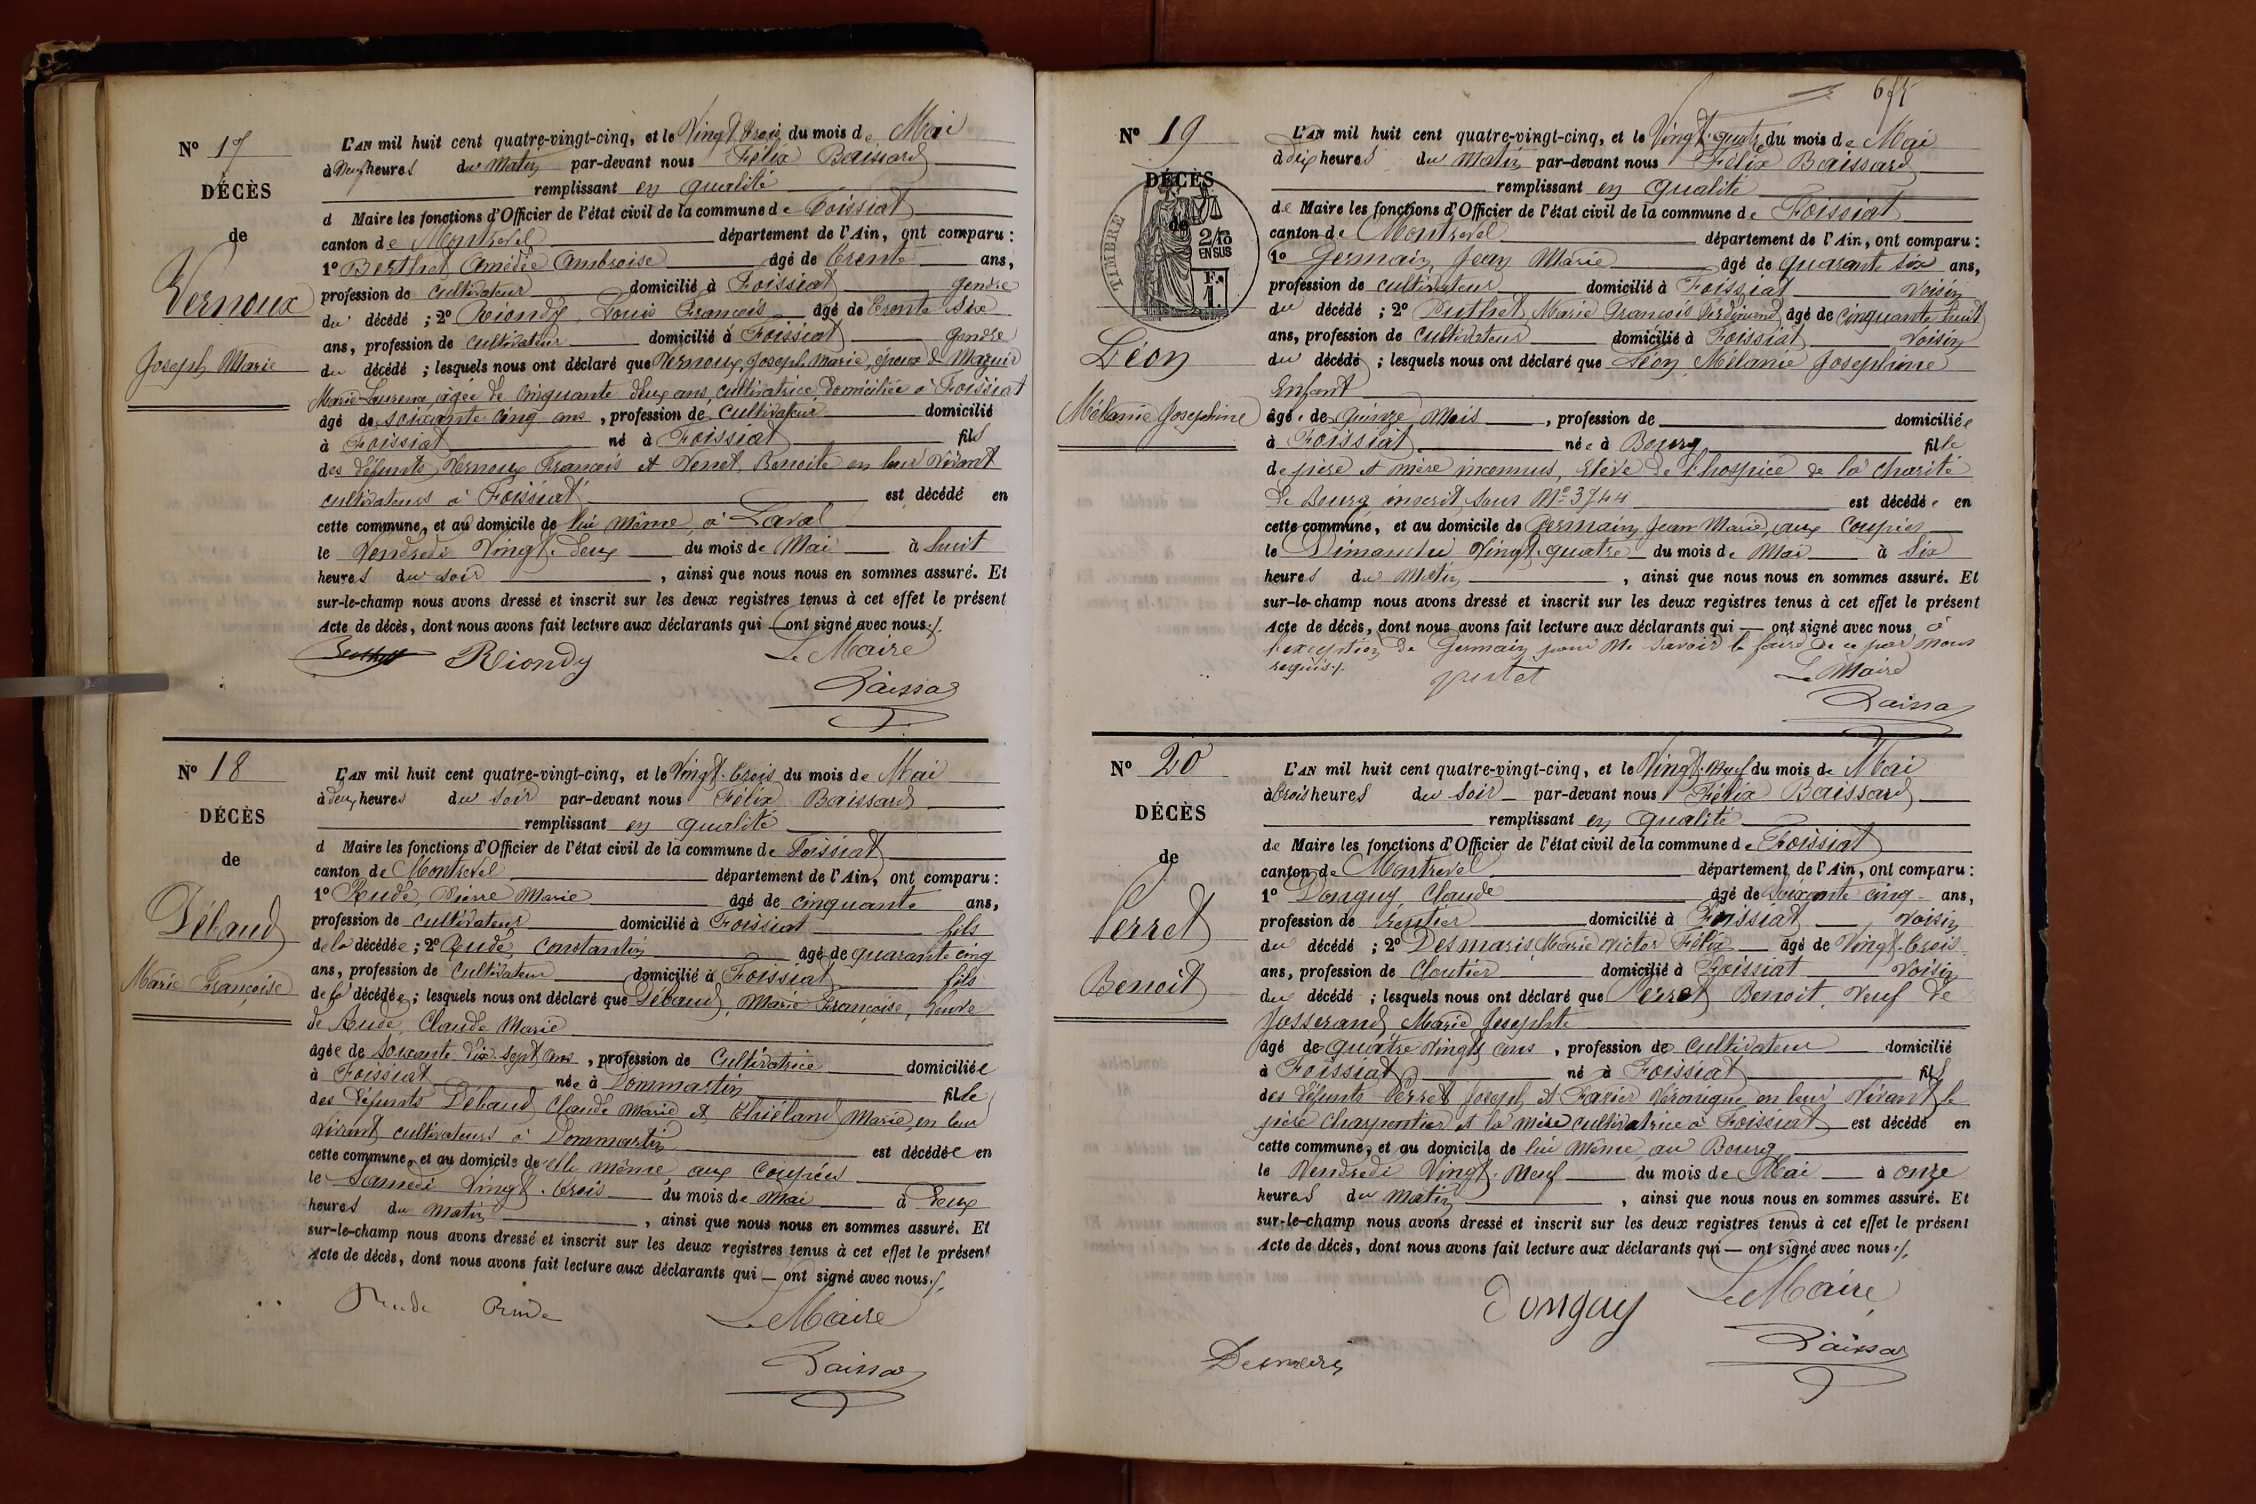 N° 17
DÉCÈS
de
Vernoux
Joseph Marie
L'AN mil huit cent quatre-vingt-cinq, et le Vingt trois du mois de Mai
à Neuf heures du Matin par-devant nous Félix Baissard
remplissant en qualité
d Maire les fonctions d'Officier de l'état civil de la commune de Foissiat
canton de Montrevel département de l'Ain, ont comparu :
1° Berthet Amédée Ambroise âgé de trente ans,
profession de cultivateur domicilié à Foissiat gendre
du décédé ; 2° Riondy Louis François âgé de trente six
ans, profession de cultivateur domicilié à Foissiat gendre
du décédé ; lesquels nous ont déclaré que Vernoux, Joseph Marie, époux de
Marie Laurence, agée de cinquante deux ans, cultivatrice, domiciliée à Foissiat
âgé de soixante cinq ans, profession de cultivateur domicilié
à Foissiat né à Foissiat fils
des défunts Vernoux François et Benoite en leur vivant
cultivateurs à Foissiat est décédé en
cette commune, et au domicile de lui même, à Laval
le Vendredi Vingt-deux du mois de Mai à huit
heures du soir, ainsi que nous nous en sommes assuré. Et
sur-le-champ nous avons dressé et inscrit sur les deux registres tenus à cet effet le présent
Acte de décès, dont nous avons fait lecture aux déclarants qui ont signé avec nous./.
Riondy Le Maire
Baissard
N° 18
DÉCÈS
de
Débaud
Marie Françoise
L'AN mil huit cent quatre-vingt-cinq, et le Vingt-trois du mois de Mai
à deux heures du soir par-devant nous Félix Baissard
remplissant en qualité
d Maire les fonctions d'Officier de l'état civil de la commune de Foissiat
canton de Montrevel département de l'Ain, ont comparu :
1° Rude, Pierre Marie âgé de cinquante ans,
profession de cultivateur domicilié à Foissiat fils
de la décédée ; 2° Rude, Constantin âgé de quarante cinq
ans, profession de cultivateur domicilié à Foissiat fils
de la décédée ; lesquels nous ont déclaré que Débaud, Marie Françoise, Veuve
de Rude, Claude Marie
âgée de soixante dix-sept ans, profession de Cultivatrice domiciliée
à Foissiat née à Dommartin fille
des défunts Débaud Claude Marie et Marie, en leur
vivant cultivateurs à Dommartin est décédée en
cette commune, et au domicile de elle même, aux Coupées
le Samedi Vingt-trois du mois de Mai à deux
heures du matin, ainsi que nous nous en sommes assuré. Et
sur-le-champ nous avons dressé et inscrit sur les deux registres tenus à cet effet le présent
Acte de décès, dont nous avons fait lecture aux déclarants qui ont signé avec nous./.
Rude Rude Le Maire
Baissard
N° 19
DÉCÈS
de
TIMBRE
2/10
EN SUS
Léon
Mélanie Josephine
L'AN mil huit cent quatre-vingt-cinq, et le Vingt-quatre du mois de Mai
à dix heures du Matin par-devant nous Félix Baissard
remplissant en qualité
de Maire les fonctions d'Officier de l'état civil de la commune de Foissiat
canton de Montrevel département de l'Ain, ont comparu :
1° Germain, Jean Marie âgé de quarante six ans,
profession de cultivateur domicilié à Foissiat Voisin
du décédé ; 2° Marie François Ferdinand âgé de cinquante huit
ans, profession de cultivateur domicilié à Foissiat Voisin
du décédé ; lesquels nous ont déclaré que Léon, Mélanie Josephine
Enfant
âgée de quinze Mois, profession de domiciliée
à Foissiat née à Bourg fille
de père et mère inconnus, élève de l'hospice de la charité
de Bourg inscrit sous N° 3744 est décédée en
cette commune, et au domicile de Germain Jean Marie, aux Coupées
le Dimanche Vingt-quatre du mois de Mai à Six
heures du Matin, ainsi que nous nous en sommes assuré. Et
sur-le-champ nous avons dressé et inscrit sur les deux registres tenus à cet effet le présent
Acte de décès, dont nous avons fait lecture aux déclarants qui ont signé avec nous à
l'exception de Germain pour Ne savoir le faire de ce par nous
requis./. Le Maire
Baissard
N° 20
DÉCÈS
de
Perret
Benoit
L'AN mil huit cent quatre-vingt-cinq, et le Vingt-Neuf du mois de Mai
à trois heures du soir par-devant nous Félix Baissard
remplissant en qualité
de Maire les fonctions d'Officier de l'état civil de la commune de Foissiat
canton de Montrevel département de l'Ain, ont comparu :
1° Donguy, Claude âgé de Soixante cinq ans,
profession de rentier domicilié à Foissiat Voisin
du décédé ; 2° Desmaris, Marie Victor Félix âgé de Vingt-trois
ans, profession de Cloutier domicilié à Foissiat Voisin
du décédé ; lesquels nous ont déclaré que Perret Benoit, Veuf de
Josserand Marie Josephte
âgé de quatre Vingts ans, profession de cultivateur domicilié
à Foissiat né à Foissiat fils
des défunts Perret Joseph et Favier Véronique en leur vivant le
père charpentier et la mère cultivatrice à Foissiat est décédé en
cette commune, et au domicile de lui même au Bourg
le Vendredi Vingt-Neuf du mois de Mai à onze
heures du Matin, ainsi que nous nous en sommes assuré. Et
sur-le-champ nous avons dressé et inscrit sur les deux registres tenus à cet effet le présent
Acte de décès, dont nous avons fait lecture aux déclarants qui ont signé avec nous./.
Donguy Le Maire
Desmaris Baissard